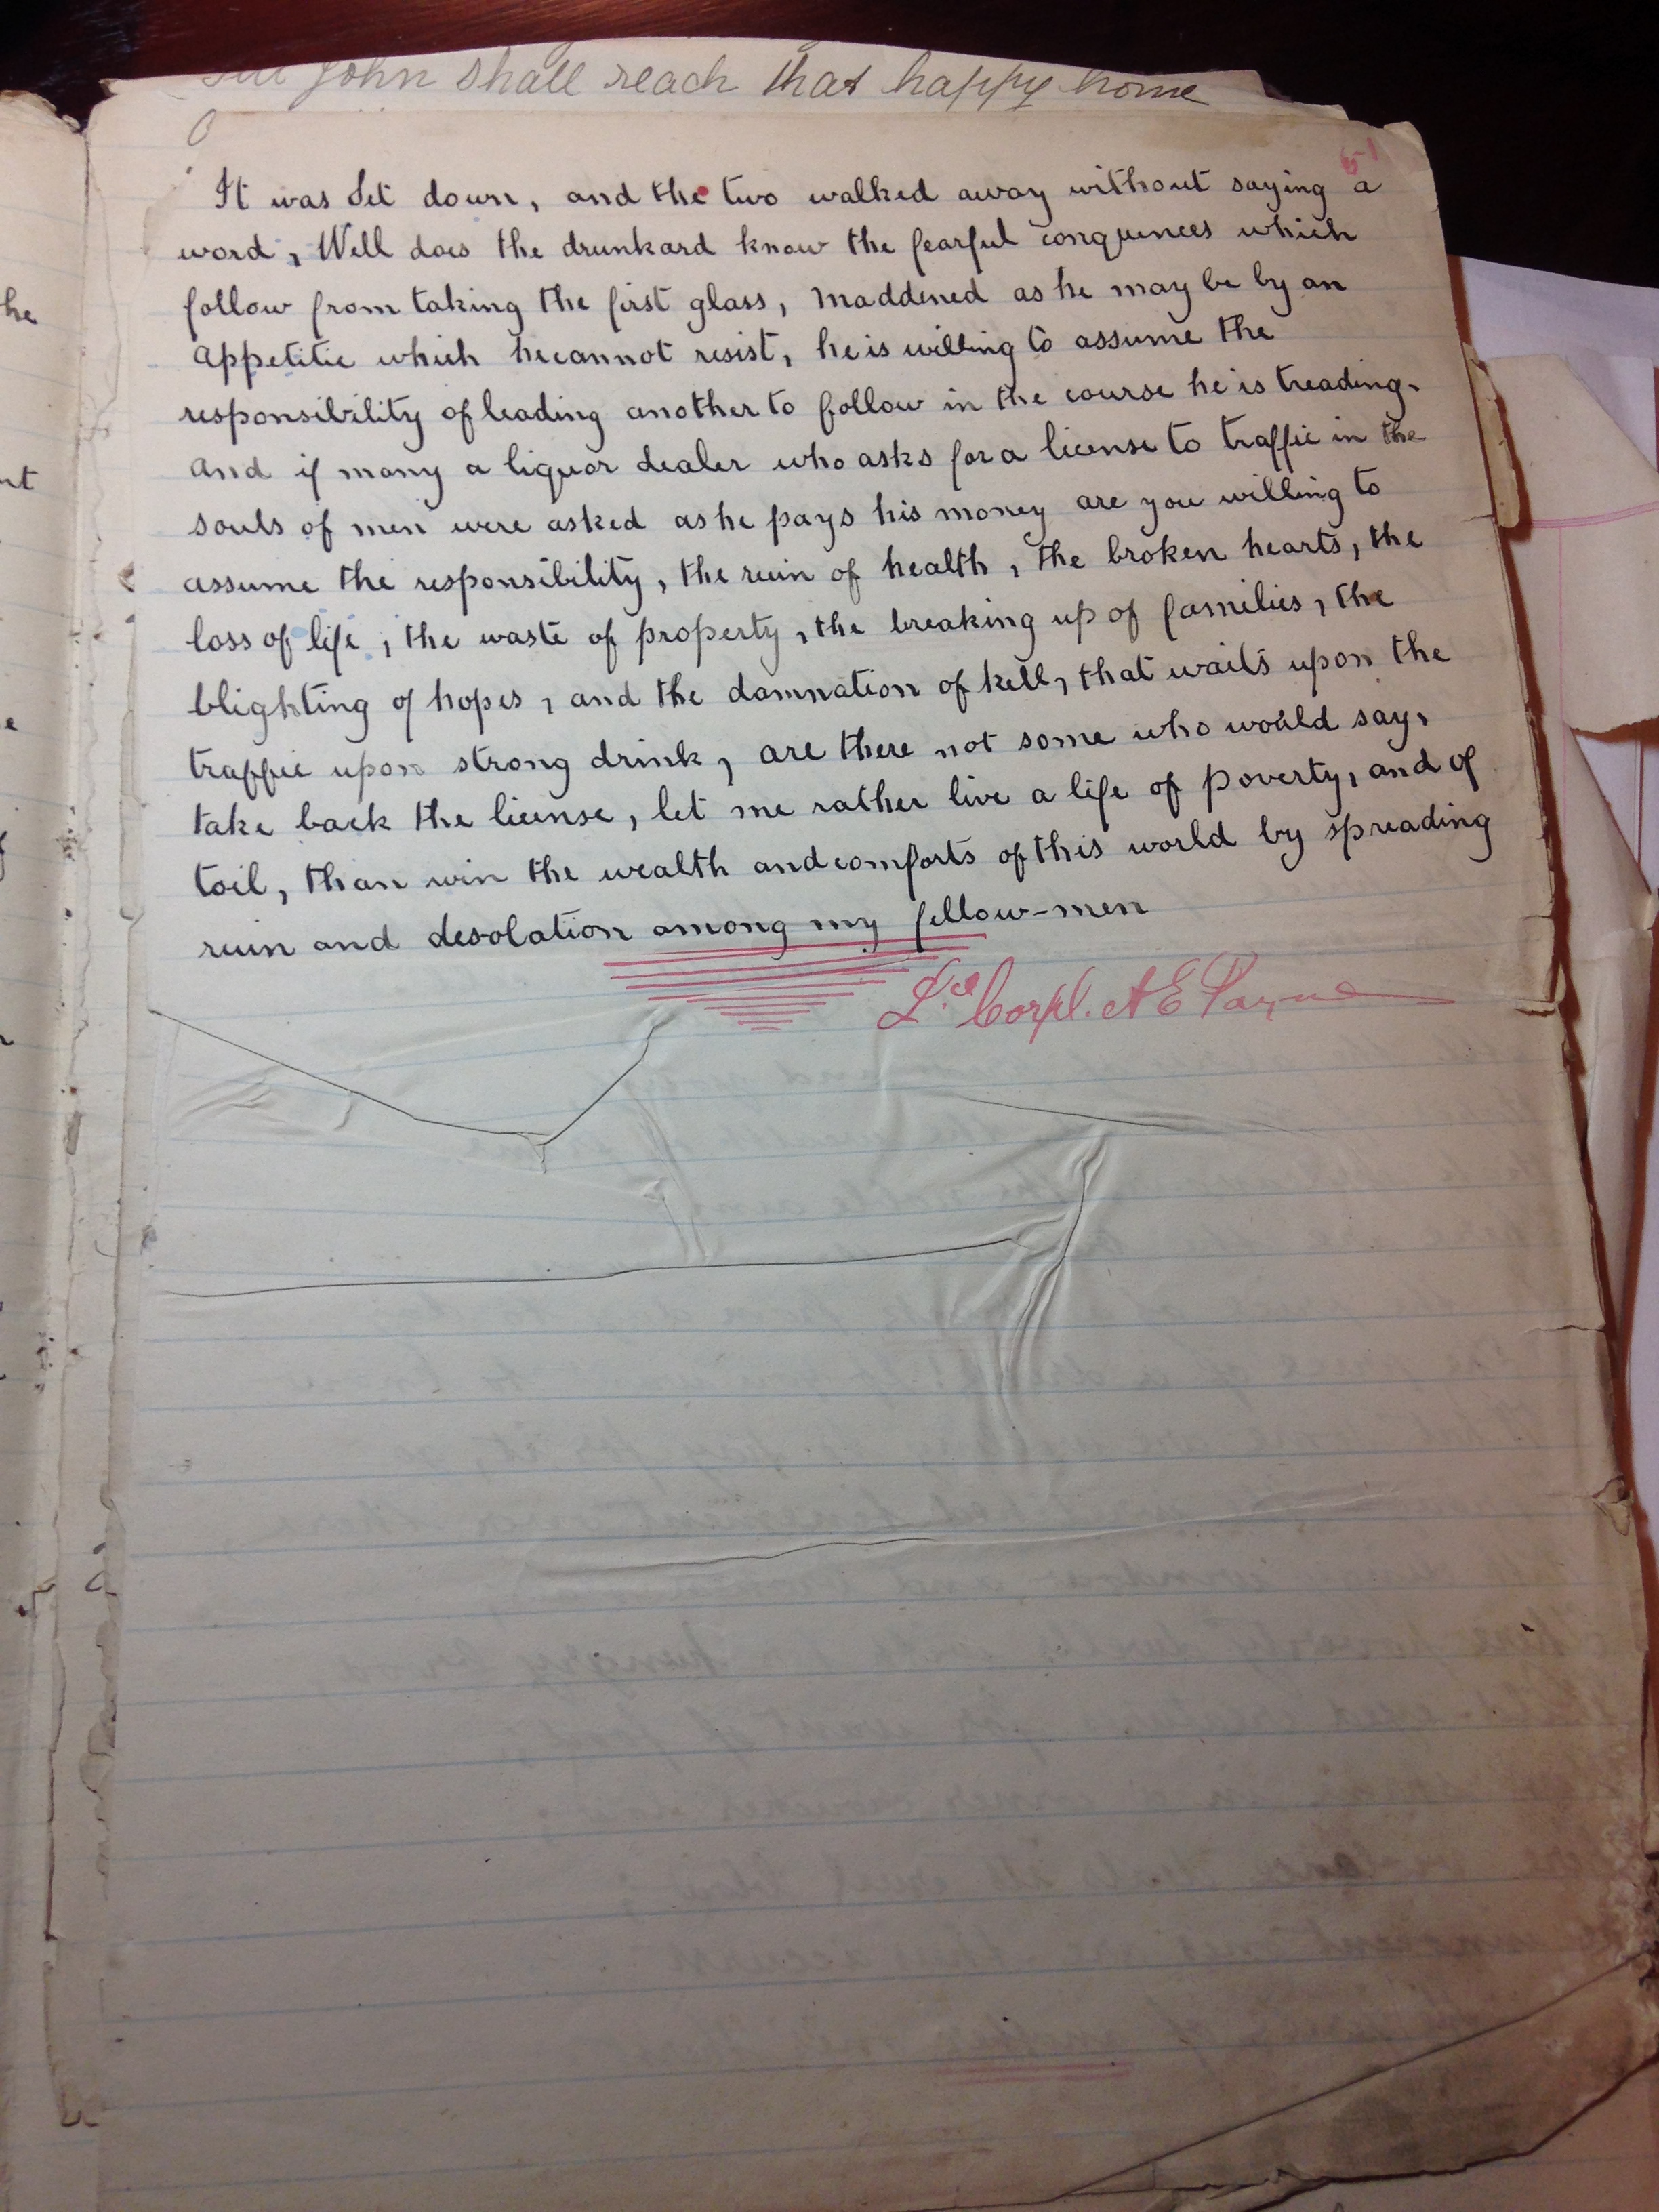 John shall reach that happy home
It was Set down, and the two walked away without saying a
word, Well does the drunkard know the fearful conquences which
follow from taking the first glass, Maddened as he may be by an
appetitie which hecannot resist, he is willing to assume the
responsibility of leading another to follow in the course he is treading.
and if many a liquor dealer who asks for a license to traffic in the
souls of men were asked as he pays his money are you willing to
assume the responsibility, the ruin of health, the broken hearts, the
loss of life, the waste of property, the breaking up of families, the
blighting of hopes, and the damnation of hell, that waits upon the
traffic upon strong drink, are there not some who would say,
take back the license, let me rather live a life of poverty, and of
toil, than win the wealth and comforts of this world by spreading
ruin and desolation among my fellow-men
Lce Corpl. A E Payne
he